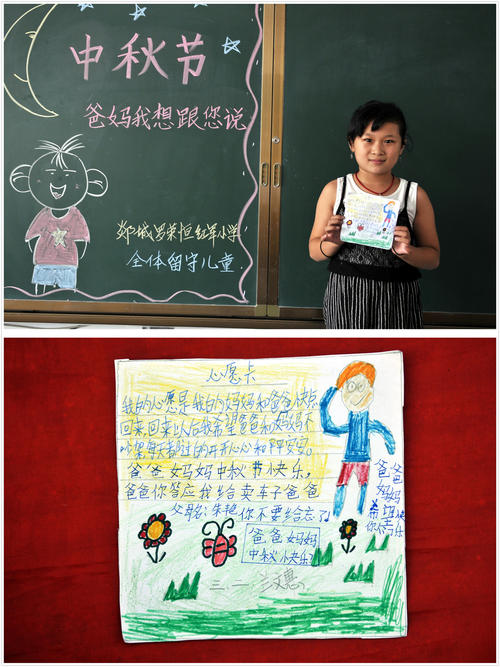 中秋节
爸妈我想跟您说
郯城罗荣恒红军小学
全体留守儿童
心愿卡
我的心愿是我的妈妈和爸爸快点
回来,回来以后我希望爸爸和妈妈不
吵架每天都过的开开心心和平安安。
爸爸妈妈中秋节快乐,
爸爸你答应我给卖车子爸爸
父名:朱艳你不要给忘了
爸爸
妈妈
希望
你快乐
爸爸妈妈
中秋快乐
三.二